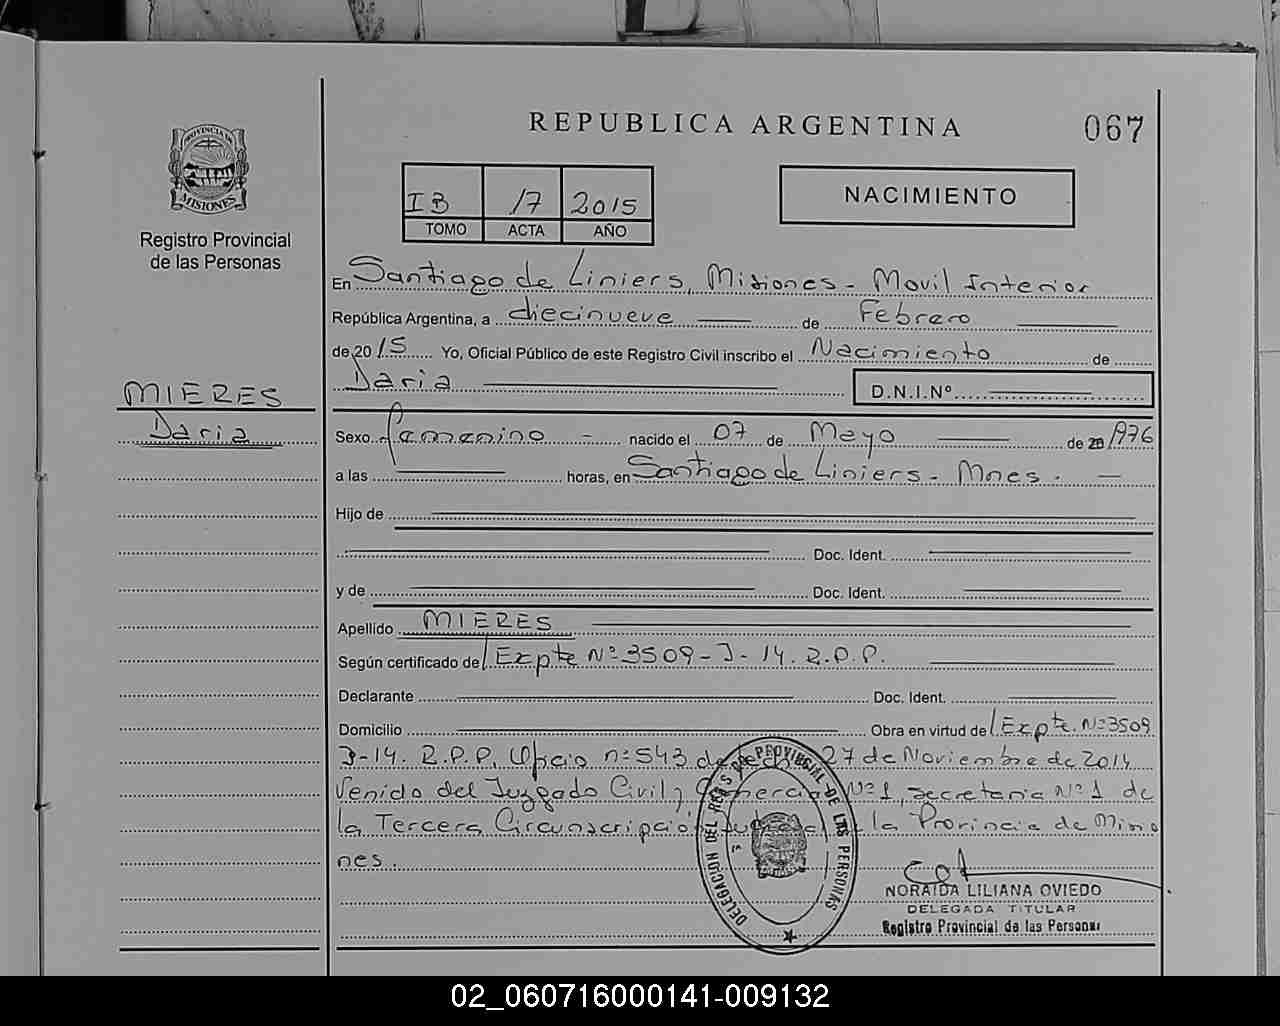 REPUBLICA ARGENTINA
067
PROVINCIA DE
MISIONES
Registro Provincial
de las Personas
IB 17 2015
TOMO ACTA AÑO
NACIMIENTO
En Santiago de Liniers, Misiones - Movil Interior
República Argentina, a diecinueve de Febrero
de 2015 Yo, Oficial Público de este Registro Civil inscribo el Nacimiento de
Daria
D.N.I.Nº
MIERES
Daria
Sexo femenino - nacido el 07 de Mayo de 20 1976
a las horas, en Santiago de Liniers - Mnes. -
Hijo de
Doc. Ident.
y de Doc. Ident.
Apellido MIERES
Según certificado de Expte Nº 3509-J-14. R.P.P.
Declarante Doc. Ident.
Domicilio Obra en virtud de Expte. Nº 3509
J-14. R.P.P. Oficio nº 543 de fecha 27 de Noviembre de 2014
Venido del Juzgado Civil y Comercial Nº 1, secretaria Nº 1 de
la Tercera Circunscripción Judicial de la Provincia de Misio
nes.
DELEGACION DEL REGISTRO PROVINCIAL DE LAS PERSONAS
NORAIDA LILIANA OVIEDO
DELEGADA TITULAR
Registro Provincial de las Personas
02_060716000141-009132